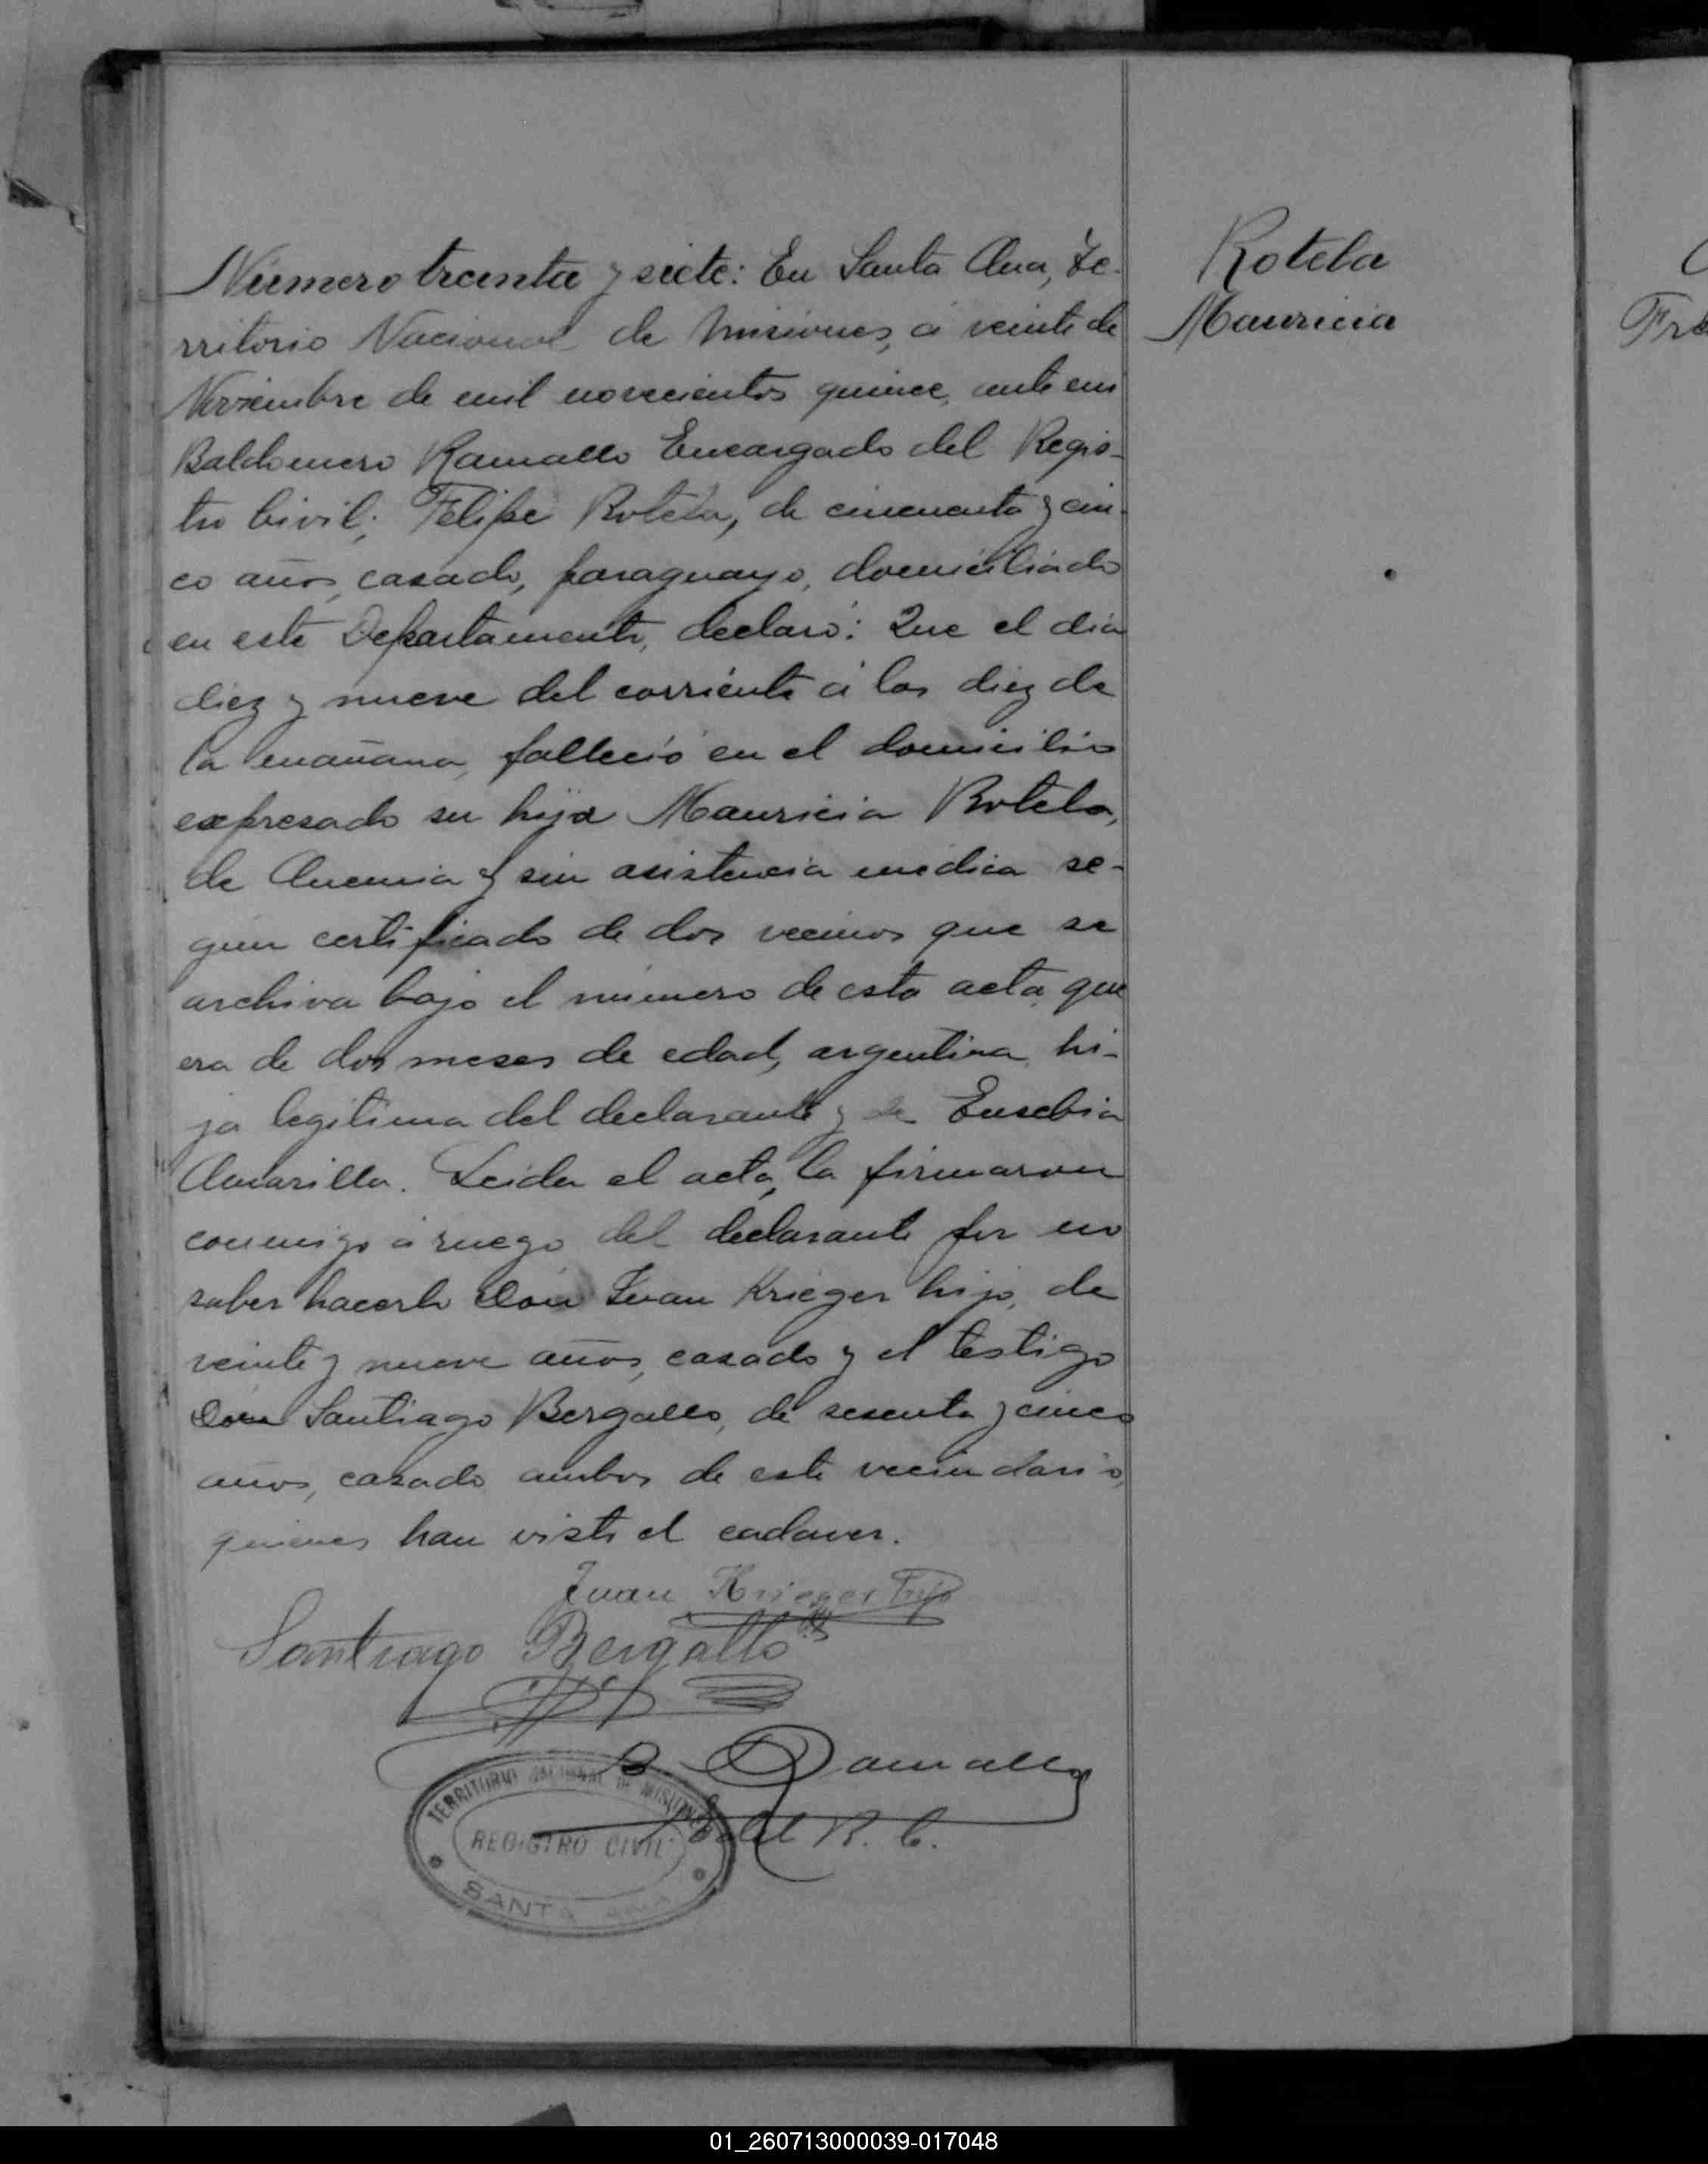 Número treinta y siete: En Santa Ana, Te-
rritorio Nacional de Misiones, á veinte de
Noviembre de mil novecientos quince, ante mi
Baldomero Ramallo Encargado del Regis-
tro Civil; Felipe Rotela, de cincuenta y cin-
co años, casado, paraguayo, domiciliado
en este Departamento, declaró: Que el dia
diez y nueve del corriente á las diez de
la mañana, falleció en el domicilio
expresado su hija Mauricia Rotela,
de Anemia y sin asistencia médica se-
gun certificado de dos vecinos que se
archiva bajo el número de esta acta, que
era de dos meses de edad, argentina, hi-
ja legitima del declarante y de Eusebia
Amarilla. Leida el acta, la firmaron
conmigo á ruego del declarante por no
saber hacerlo Don Juan Krieger hijo, de
veinte y nueve años, casado y el testigo
Don Santiago Bergallo, de sesenta y cinco
años, casado ambos de este vecindario,
quienes han visto el cadaver.
Juan Krieger hijo
Santiago Bergallo
B Ramallo
E. del R. C.
TERRITORIO NACIONAL DE MISIONES
REGISTRO CIVIL
SANTA ANA
Rotela
Mauricia
Fra
01_260713000039-017048